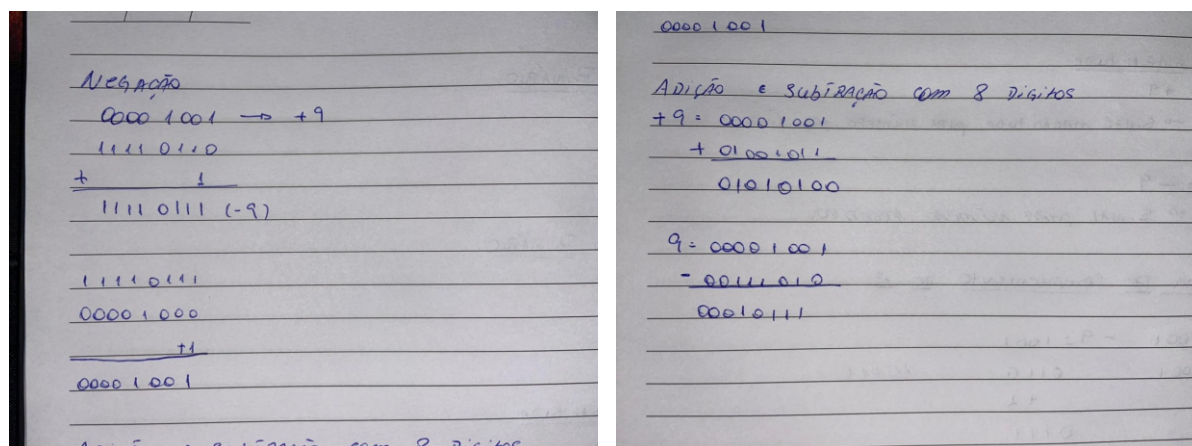 NEGAÇÃO
00001001 → +9
11110110
+ 1
11110111 (-9)
11110111
00001000
+1
00001001
00001001
ADIÇÃO E SUBTRAÇÃO COM 8 DIGITOS
+9 = 00001001
+ 01001011
01010100
9 = 00001001
- 00111010
00010111